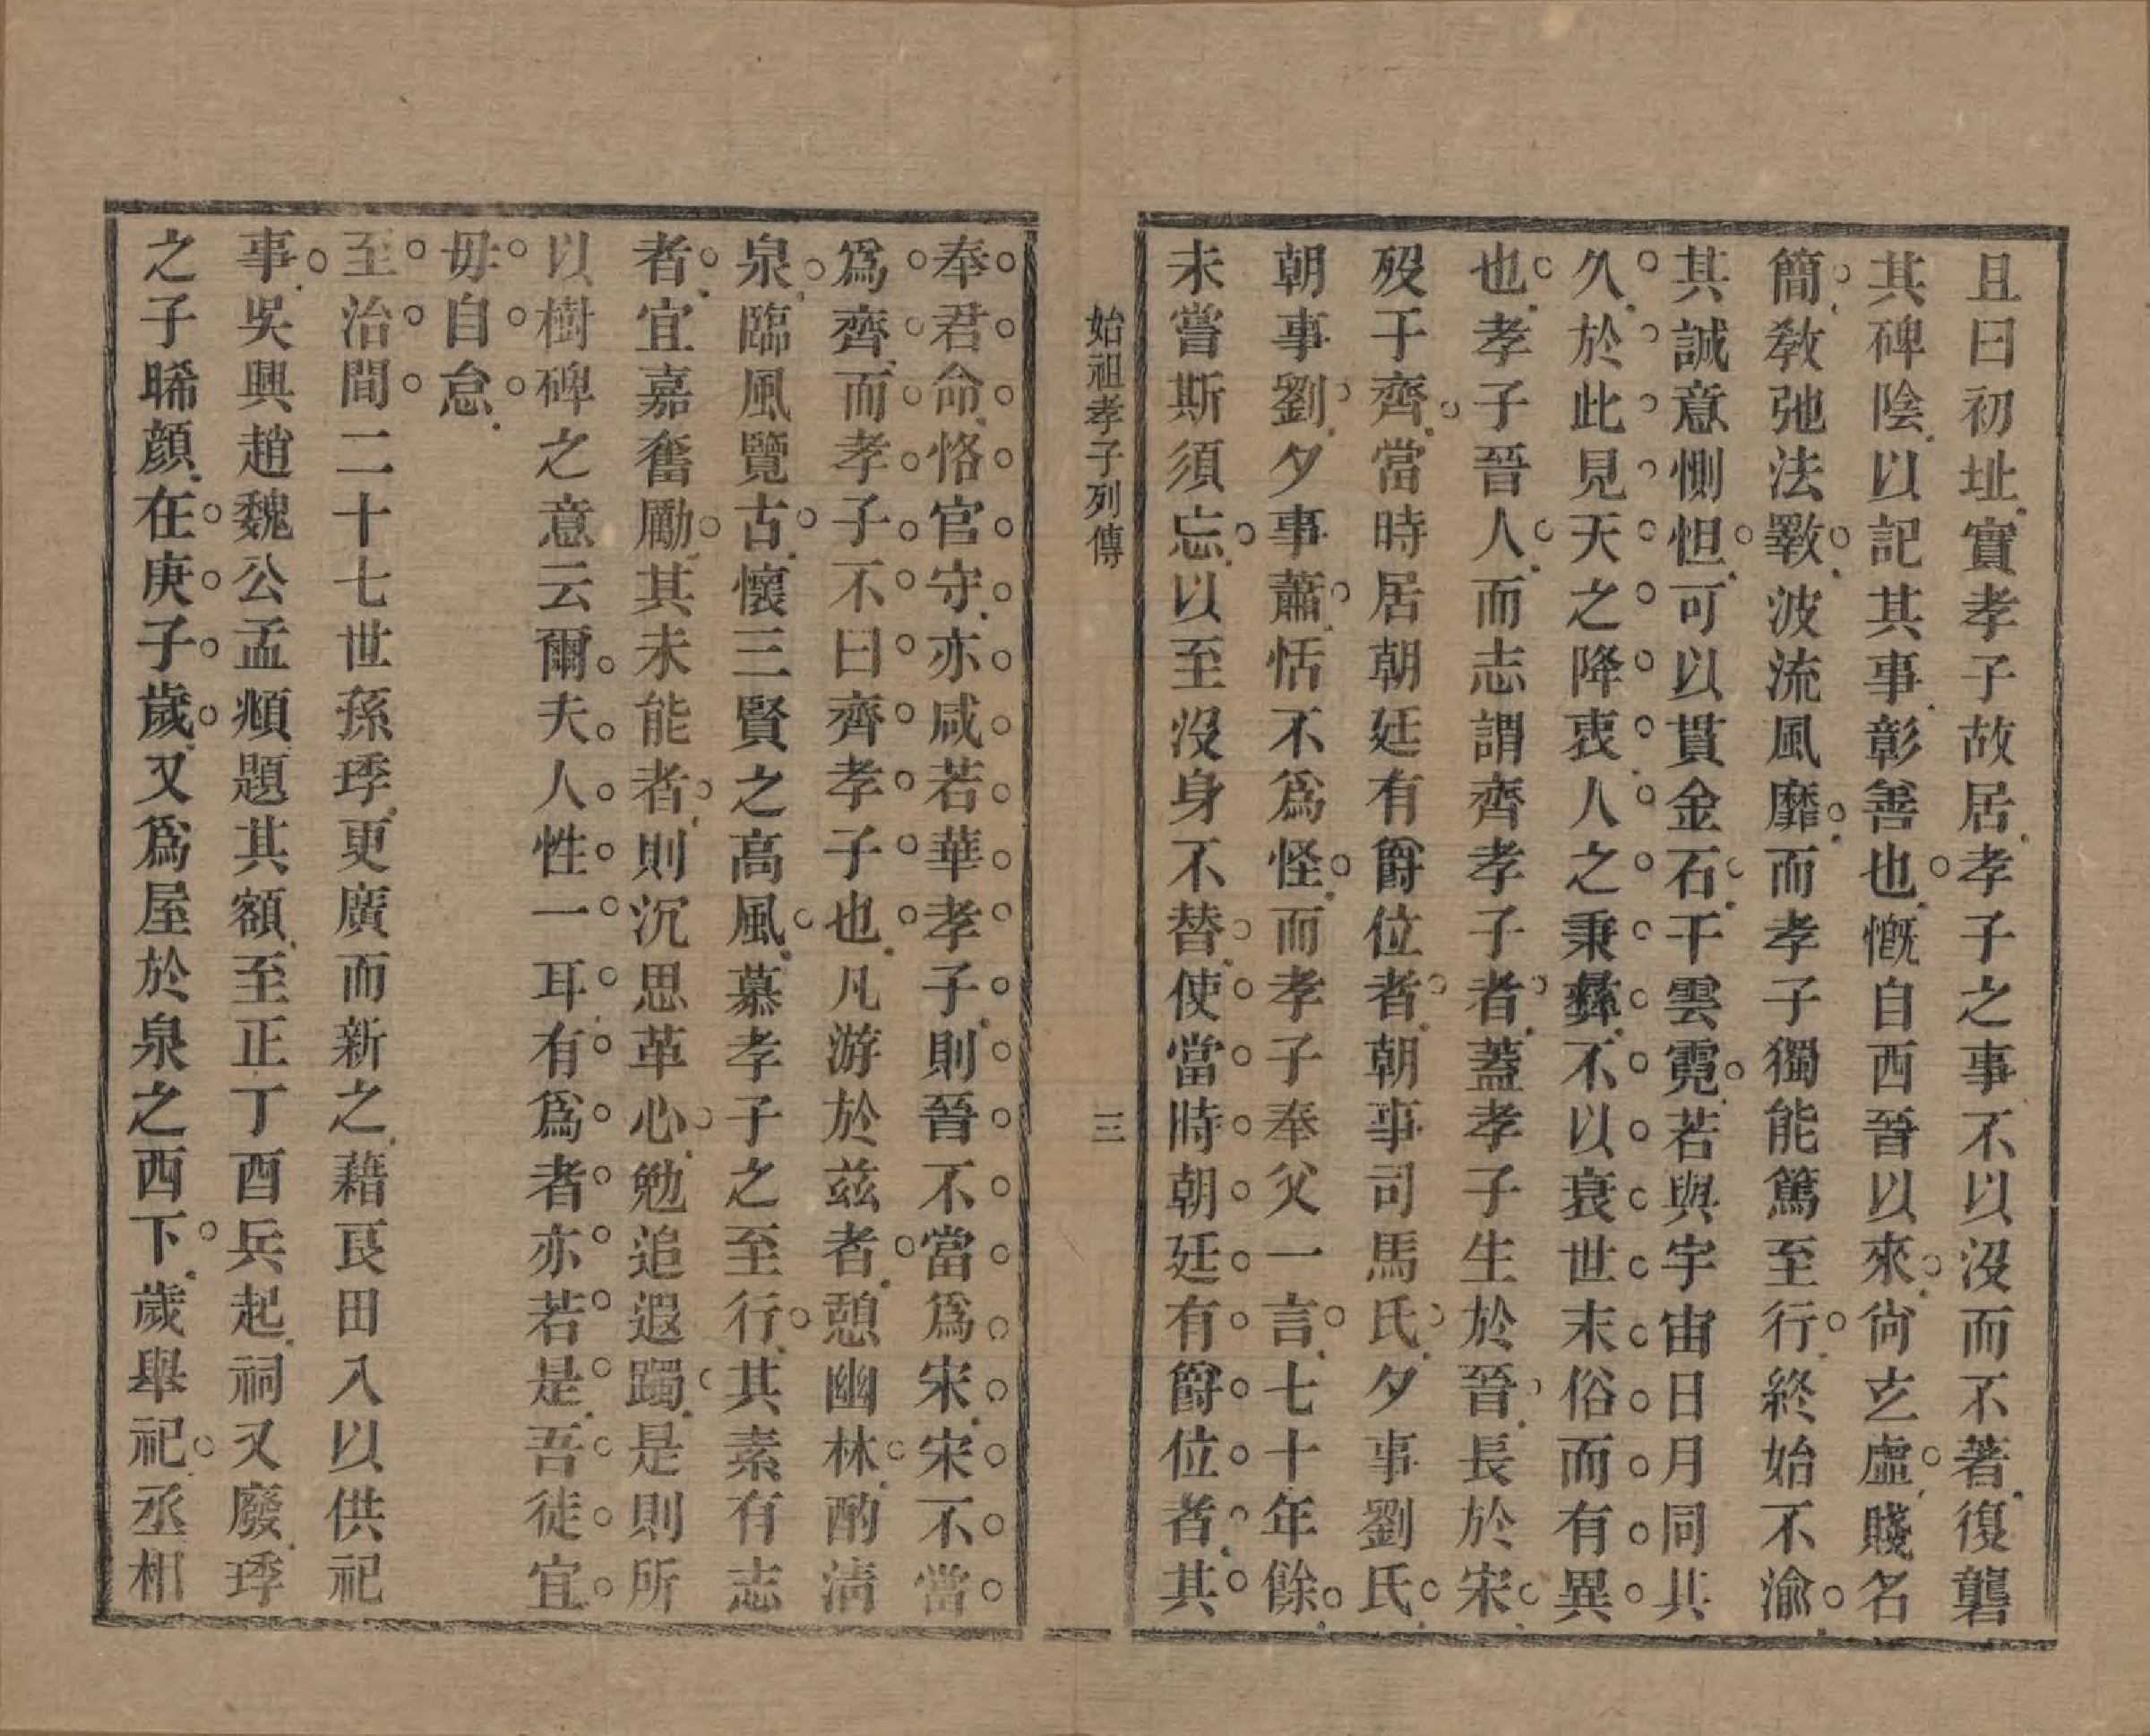 且曰初址實孝子故居孝子之事不以沒而不著復礱
其碑陰以記其事彰善也慨自西晉以來尙玄虛賤名
簡敎弛法斁波流風靡而孝子獨能篤至行終始不渝
其誠意惻怛可以貫金石干雲霓若與宇宙日月同其
久於此見天之降衷人之秉彝不以衰世末俗而有異
也孝子晉人而志謂齊孝子者蓋孝子生於晉長於宋
歿于齊當時居朝廷有爵位者朝事司馬氏夕事劉氏
朝事劉夕事蕭恬不爲怪而孝子奉父一言七十年餘
未嘗斯須忘以至沒身不替使當時朝廷有爵位者其
始祖孝子列傳
三
奉君命恪官守亦咸若華孝子則晉不當爲宋宋不當
爲齊而孝子不曰齊孝子也凡游於茲者憩幽林酌淸
泉臨風覽古懷三賢之高風慕孝子之至行其素有志
者宜嘉奮勵其未能者則沉思革心勉追遐躅是則所
以樹碑之意云爾夫人性一耳有爲者亦若是吾徒宜
毋自怠
至治間二十七世孫琈更廣而新之藉良田入以供祀
事吳興趙魏公孟頫題其額至正丁酉兵起祠又廢琈
之子晞顔在庚子歲又爲屋於泉之西下歲舉祀丞相